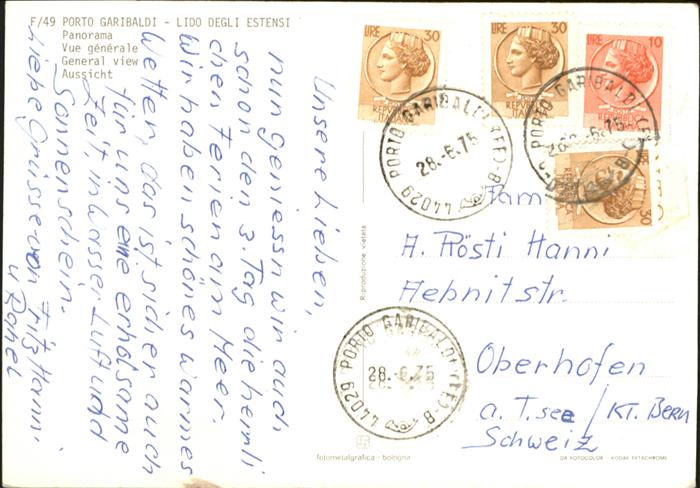 F/49 PORTO GARIBALDI - LIDO DEGLI ESTENSI
Panorama
Vue générale
General view
Aussicht
Unsere Lieben,
nun geniessn wir auch
schon den 3. Tag die herrli
chen Ferien am Meer.
Wir haben schönes warmes
Wetter, das ist sicher auch
für uns eine erholsame
Zeit, in Wasser Luft und
Sonnenschein.
Liebe Grüsse von Fritz Hanni
u Rahel
LIRE 30
LIRE 30
LIRE 10
30
44029 PORTO GARIBALDI (FE) - B
28.-6.75
Fam
A. Rösti Hanni
Aebnitstr.
Oberhofen
a. T.see / KT. Bern
Schweiz
44029 PORTO GARIBALDI (FE) - B
28.-6.75
Riproduzione vietata
fotometalgrafica - bologna
DA FOTOCOLOR - KODAK EKTACHROME